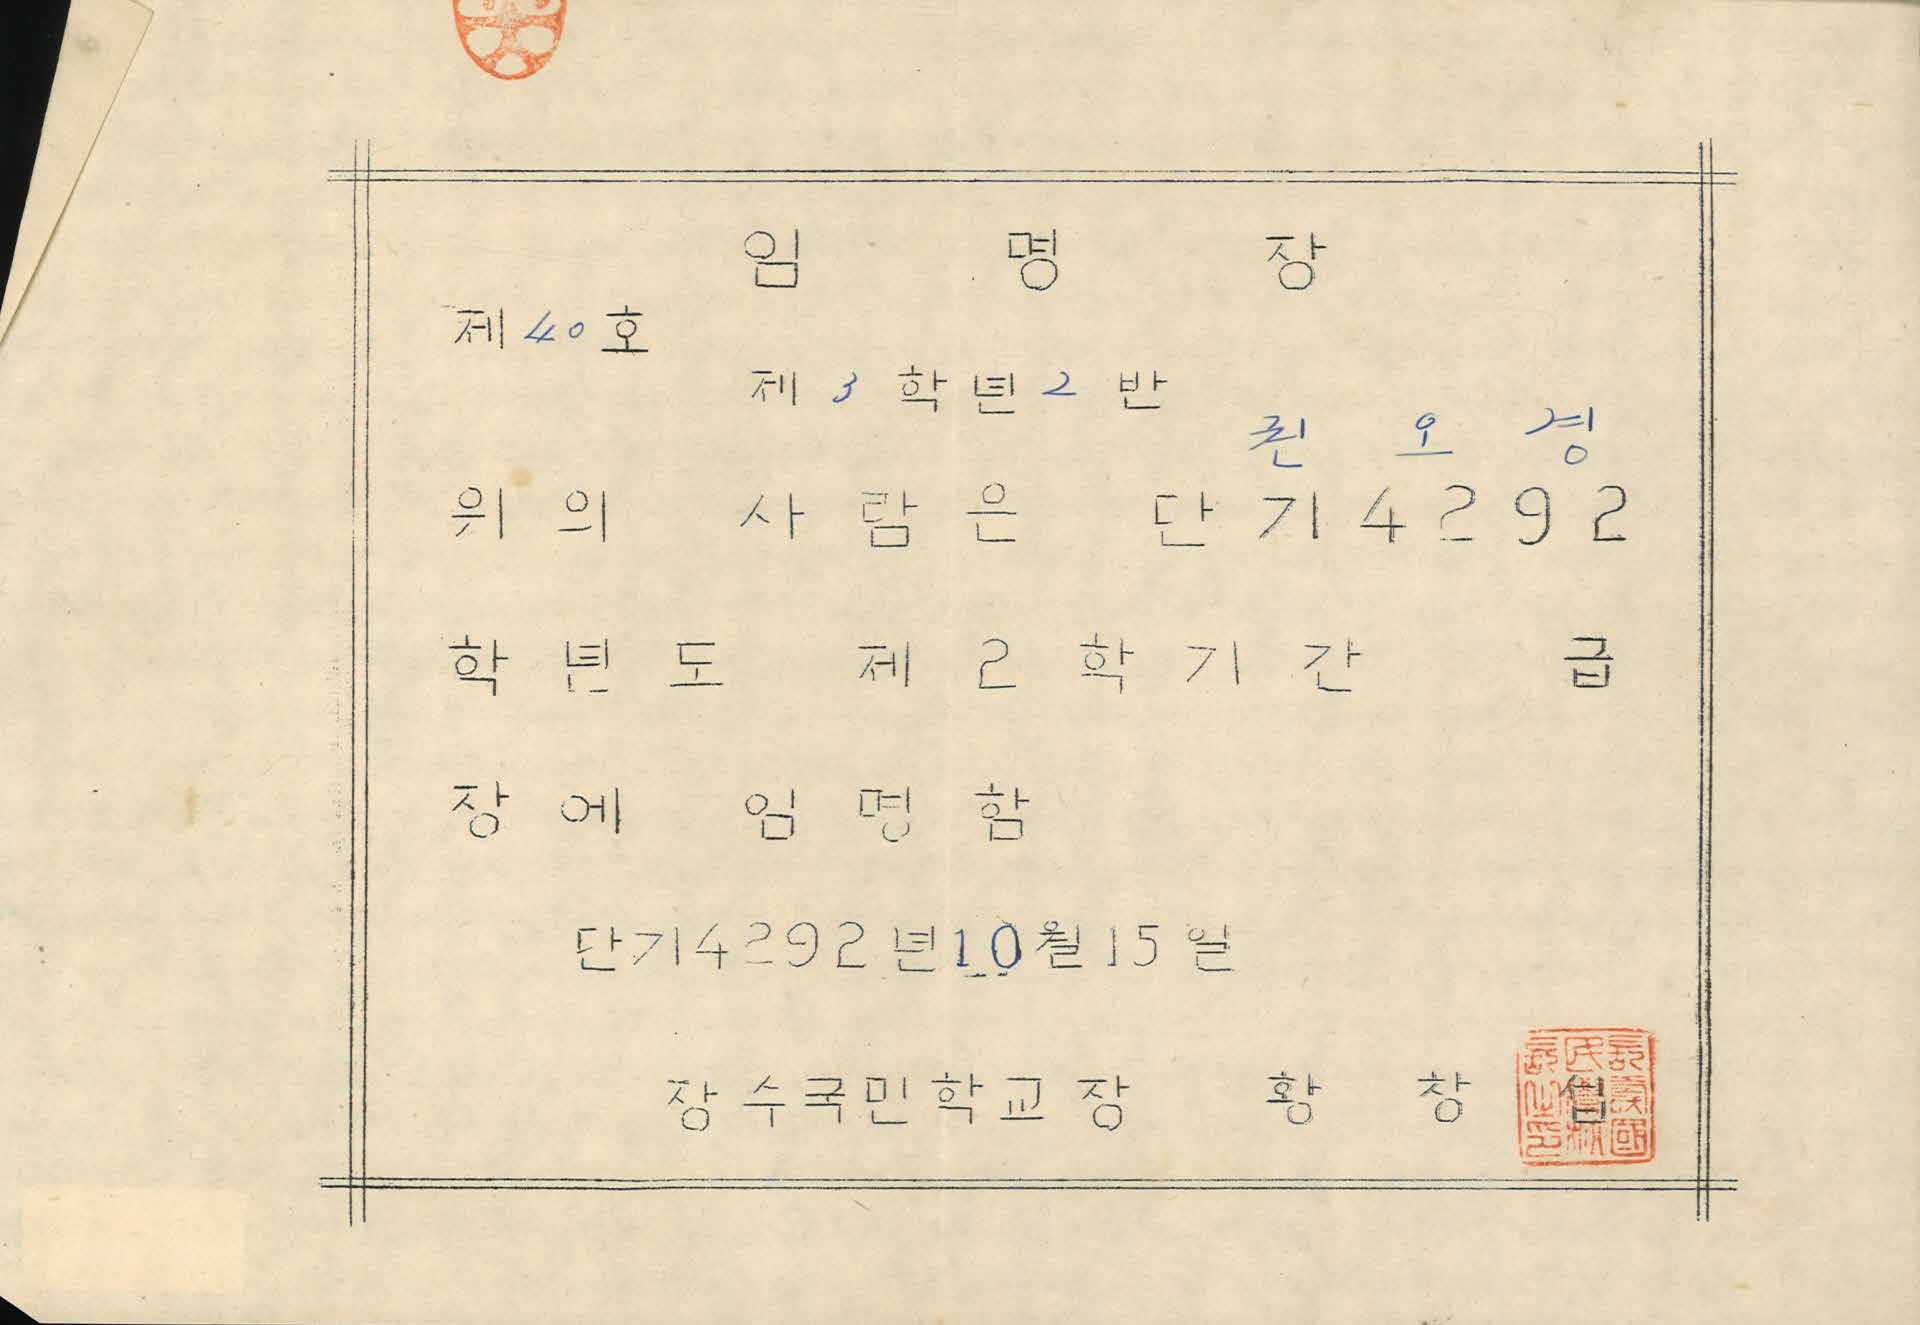 임 명 장
제 40 호
제 3 학년 2 반
권 오 경
위의 사람은 단기 4292
학년도 제 2 학기간 급
장에 임명함
단기 4292 년 10 월 15 일
장수국민학교장 황 창 섭